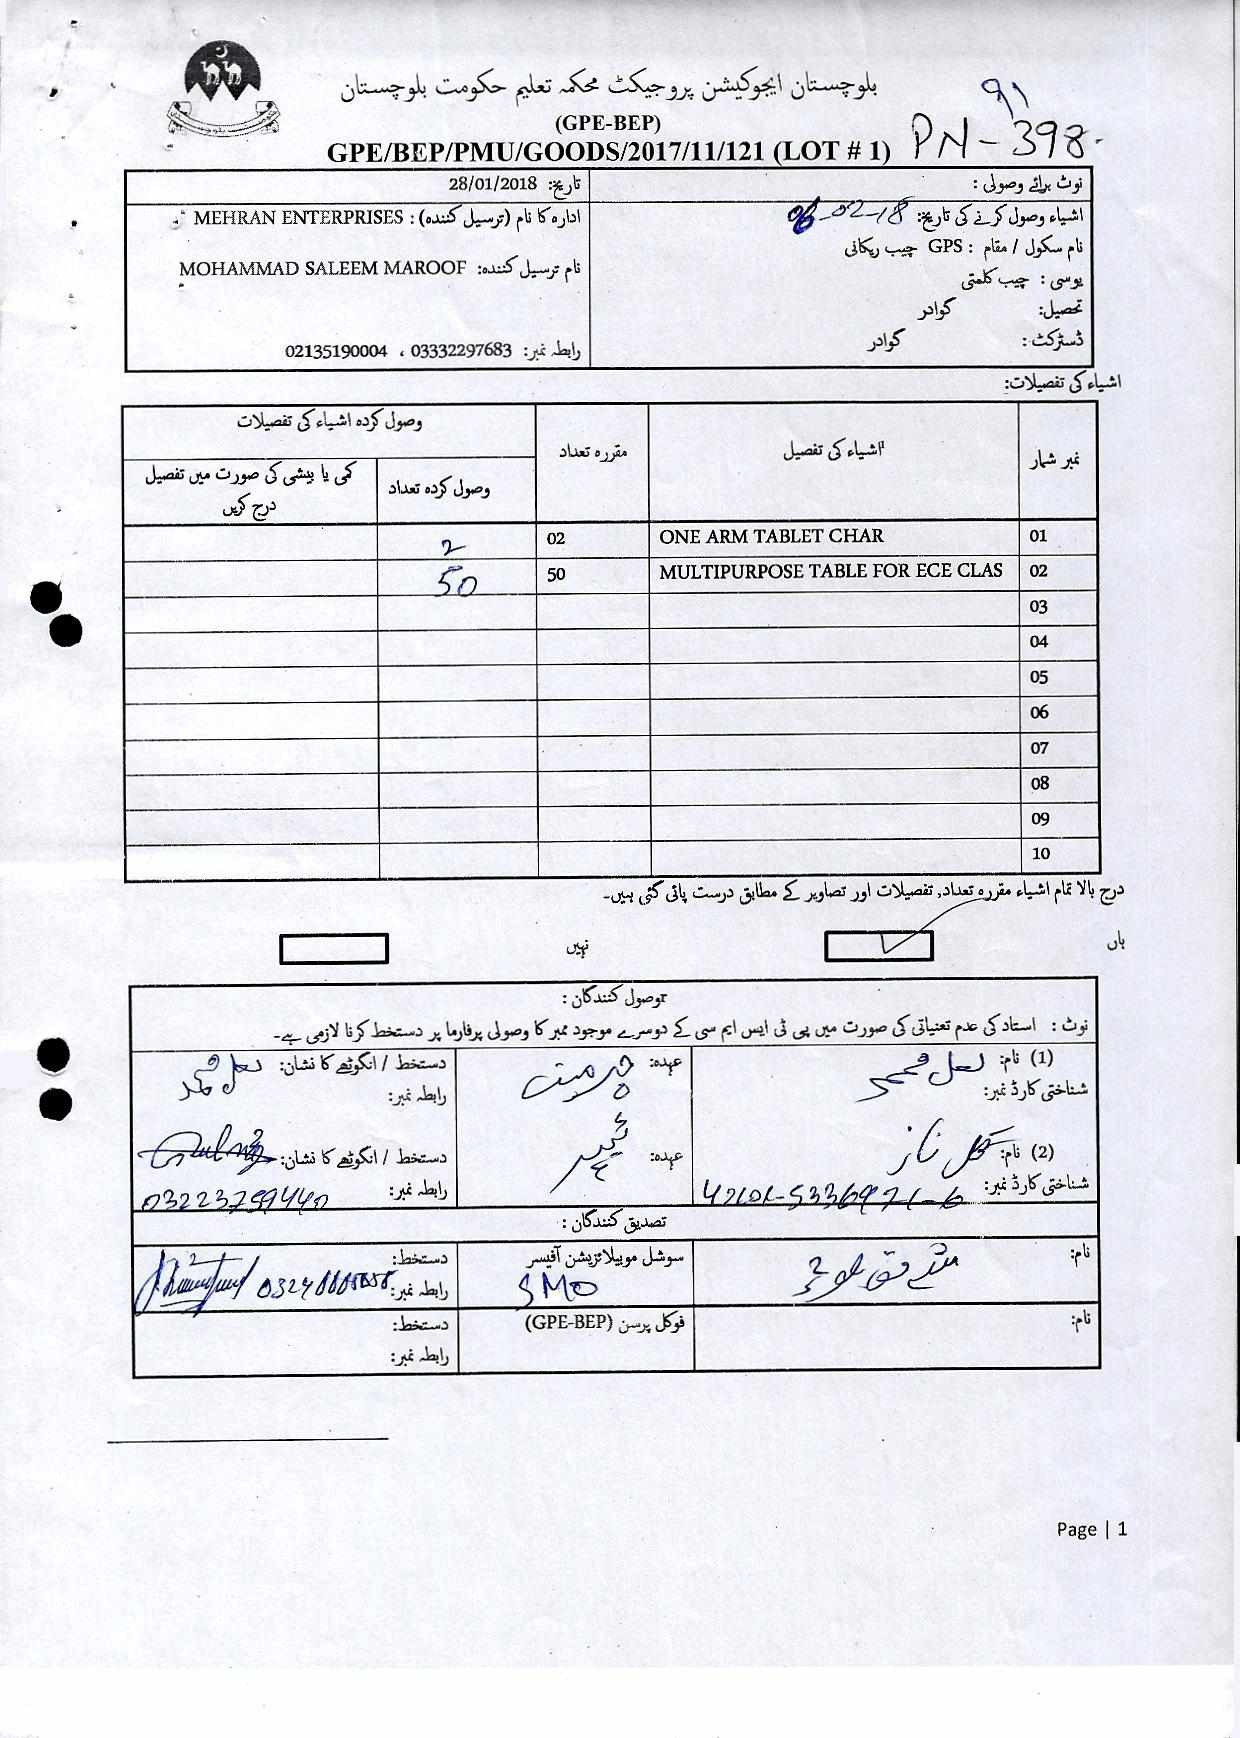 بلوچستان ایجوکیشن پروجیکٹ محکمہ تعلیم حکومت بلوچستان
91
(GPE-BEP)
GPE/BEP/PMU/GOODS/2017/11/121 (LOT # 1) PN-398
نوٹ برائے وصولی :
تاریخ: 28/01/2018
اشیاء وصول کرنے کی تاریخ: 06-02-18
ادارہ کا نام (ترسیل کنندہ) : MEHRAN ENTERPRISES
نام سکول / مقام : GPS چیب ریکانی
نام ترسیل کنندہ: MOHAMMAD SALEEM MAROOF
یوسی : چیب کلمتی
تحصیل: گوادر
ڈسٹرکٹ : گوادر
رابطہ نمبر: 03332297683 ، 02135190004
اشیاء کی تفصیلات:
نمبر شمار اشیاء کی تفصیل مقررہ تعداد وصول کردہ اشیاء کی تفصیلات
وصول کردہ تعداد کمی یا بیشی کی صورت میں تفصیل درج کریں
01 ONE ARM TABLET CHAR 02 2
02 MULTIPURPOSE TABLE FOR ECE CLAS 50 50
03
04
05
06
07
08
09
10
درج بالا تمام اشیاء مقررہ تعداد, تفصیلات اور تصاویر کے مطابق درست پائی گئی ہیں۔
ہاں نہیں
وصول کنندگان :
نوٹ : استاد کی عدم تعنیاتی کی صورت میں پی ٹی ایس ایم سی کے دوسرے موجود ممبر کا وصولی پرفارما پر دستخط کرنا لازمی ہے۔
(1) نام: لعل محمد عہدہ: دستخط / انگوٹھے کا نشان: لعل محمد
شناختی کارڈ نمبر: رابطہ نمبر:
(2) نام: گل ناز عہدہ: ٹیچر دستخط / انگوٹھے کا نشان:
شناختی کارڈ نمبر: رابطہ نمبر: 03223759440
تصدیق کنندگان :
نام: سوشل موبیلائزیشن آفیسر دستخط:
SMO رابطہ نمبر:
نام: فوکل پرسن (GPE-BEP) دستخط:
رابطہ نمبر:
Page | 1